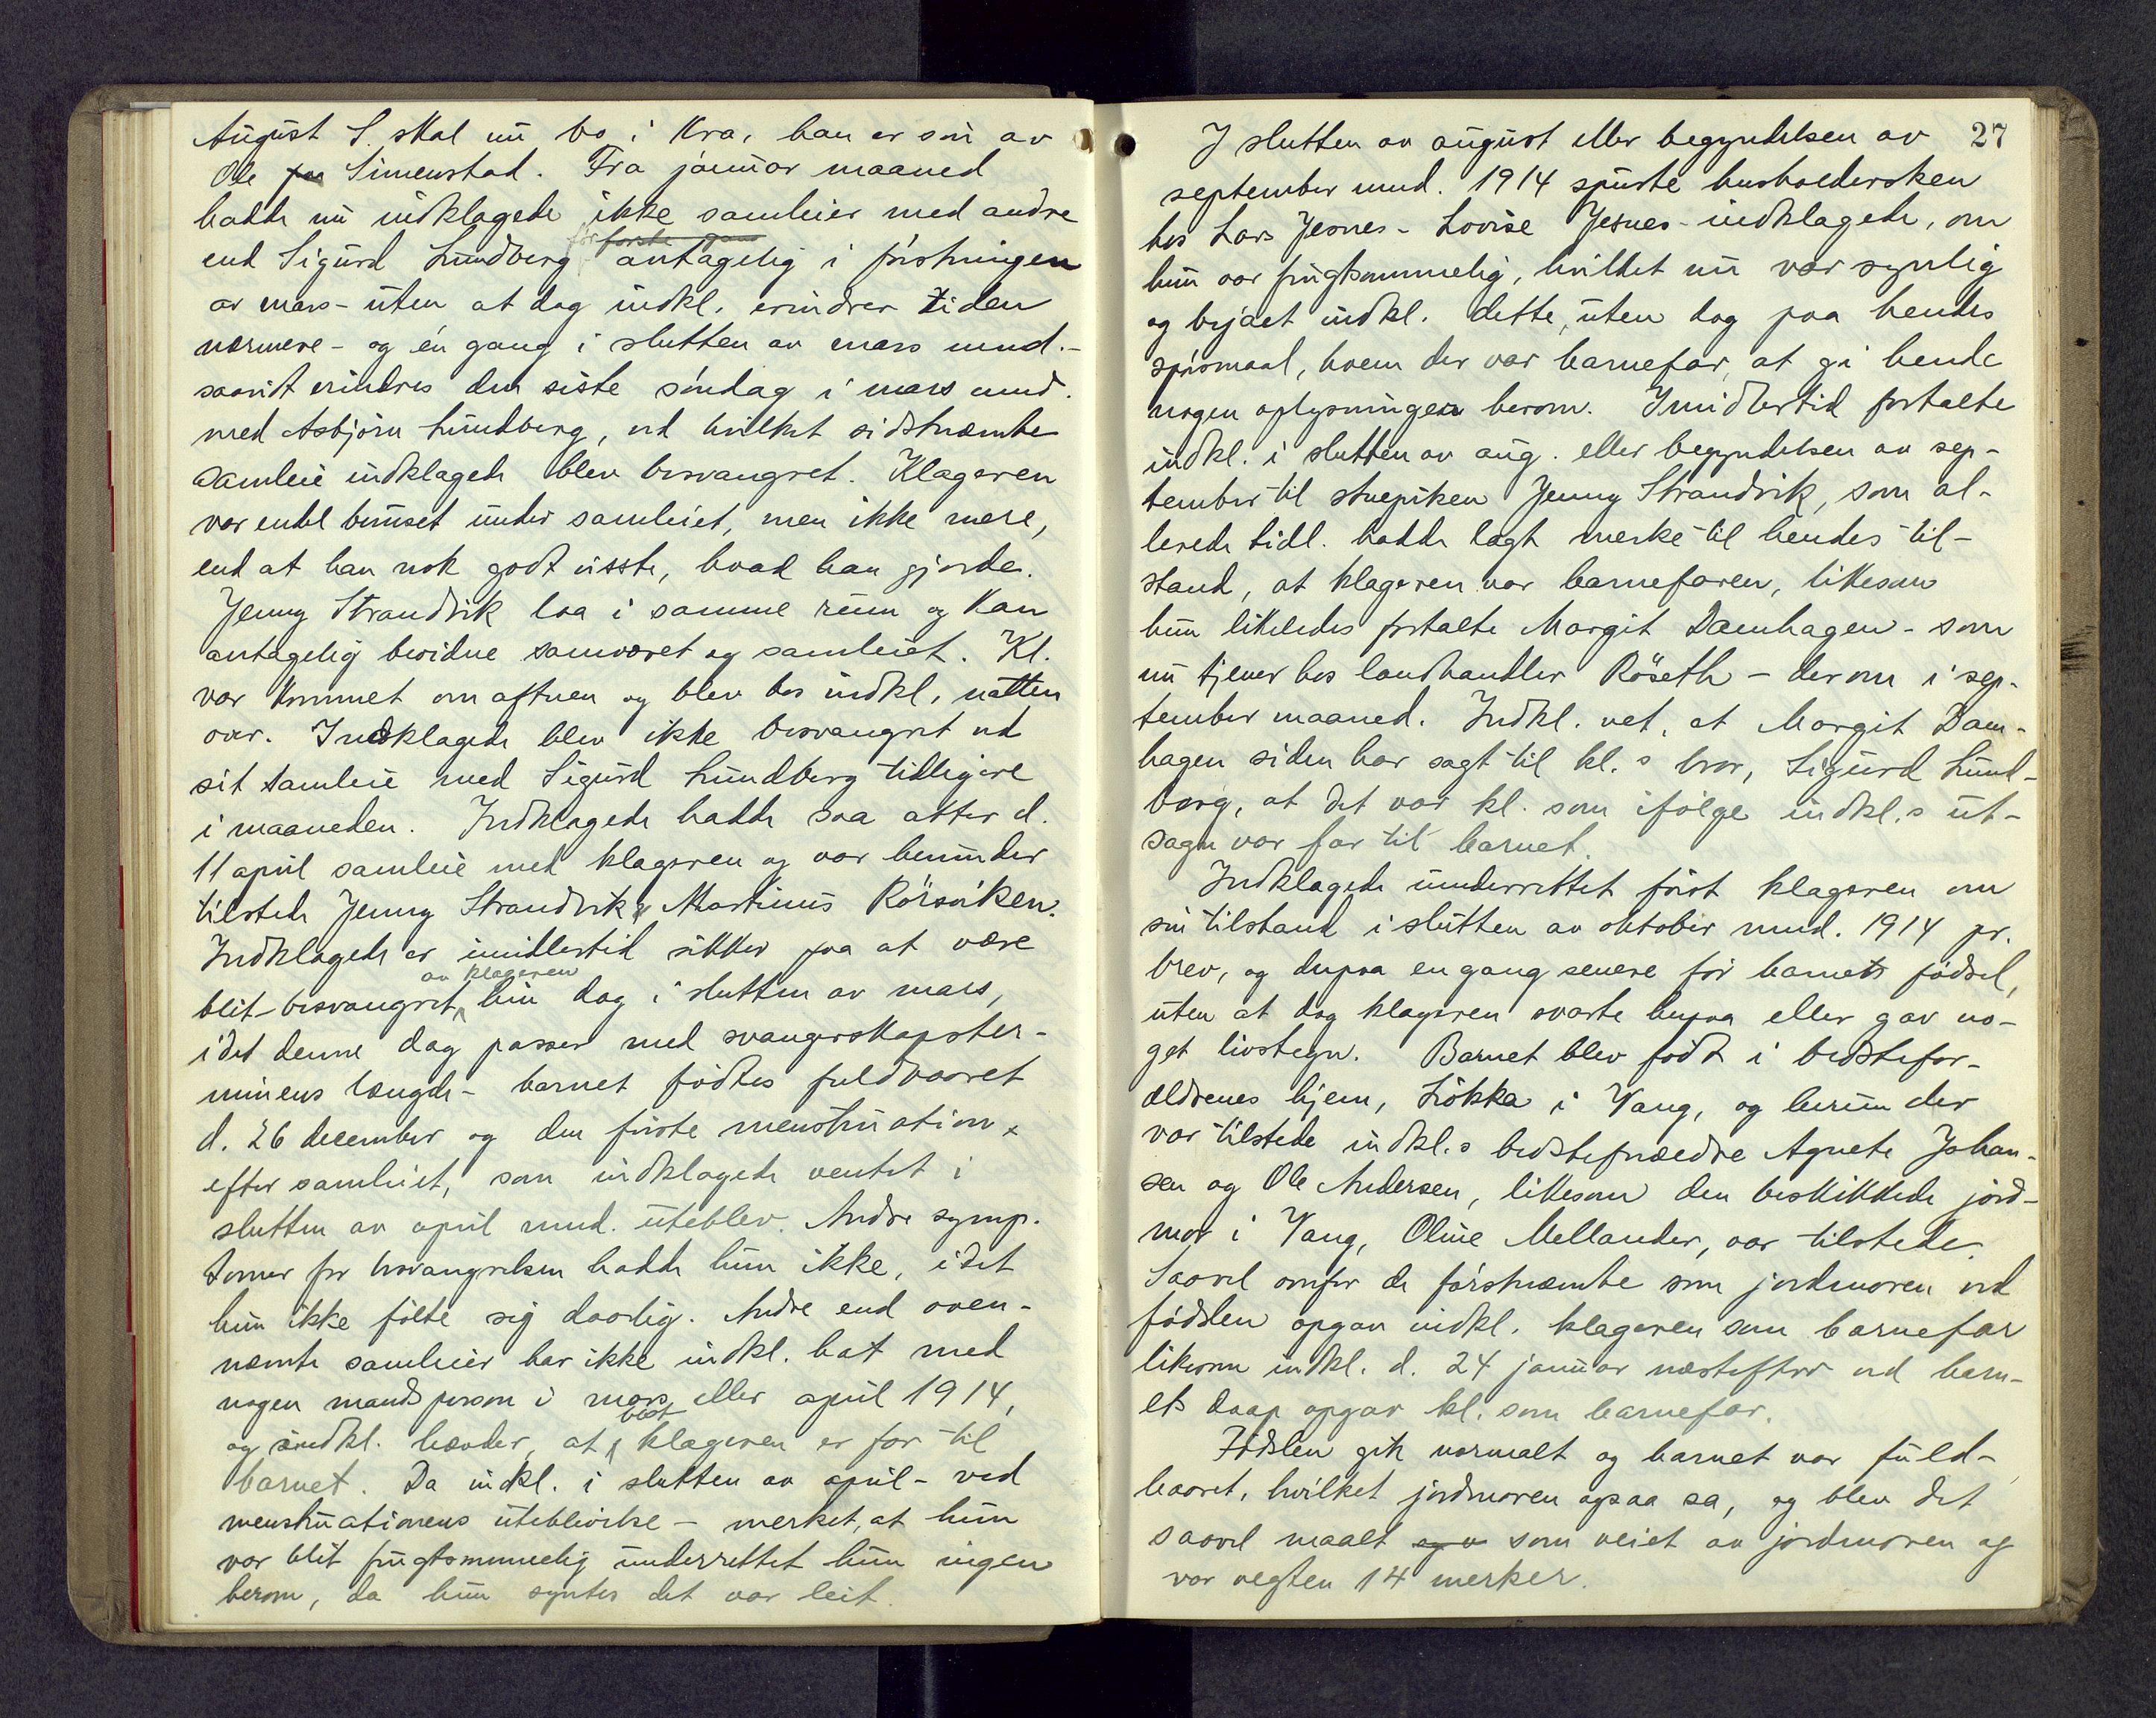 August S. skal nu bo i Kra, han er søn av
Ole paa Simenstad. Fra januar maaned
hadde nu indklagede ikke samleier med andre
før første gang
end Sigurd Lundberg antagelig i førstningen
av mars - uten at dog indkl. erindrer tiden
nærmere - og én gang i slutten av mars mnd. -
saavidt erindres den siste søndag i mars mnd.
med Asbjørn Lundberg, ved hvilket sidstnæmte
samleie indklagede blev besvangret. Klageren
var endel beruset under samleiet, men ikke mere,
end at han nok godt visste, hvad han gjorde.
Jenny Strandvik laa i samme rum og kan
antagelig bevidne samværet og samleiet. Kl.
var kommet om aftnen og blev hos indkl. natten
over. Indklagede blev ikke besvangret ved
sit samleie med Sigurd Lundberg tidligere
i maaneden. Indklagede hadde saa atter d.
11 april samleie med klageren og var herunder
tilstede Jenny Strandvik & Martinus Rörsviken.
Indklagede er imidlertid sikker paa at være
av klageren
blit besvangret hin dag i slutten av mars,
idet denne dag passer med svangerskapster-
minens længde - barnet fødtes fuldbaaret
d. 26 december og den første menstruation
efter samleiet, som indklagede ventet i
slutten av april mnd. uteblev. Andre symp-
tomer for besvangrelsen hadde hun ikke, idet
hun ikke følte sig daarlig. Andre end oven-
næmte samleier har ikke indkl. hat med
nogen mandsperson i mars eller april 1914,
og indkl. hævder, at klageren er far til
barnet. Da indkl. i slutten av april - ved
menstruationens uteblivelse - merket, at hun
var blit frugtsommelig underrettet hun ingen
herom, da hun syntes det var leit.
27
I slutten av august eller begyndelsen av
september mnd. 1914 spurte husholdersken
hos Lars Jesnes - Lovise Jesnes - indklagede, om
hun var frugtsommelig, hvilket nu var synlig
og bejaet indkl. dette, uten dog paa hendes
spørsmaal, hvem der var barnefar, at gi hende
nogen oplysninger herom. Imidlertid fortalte
indkl. i slutten av aug. eller begyndelsen av sep-
tember til stuepiken Jenny Strandvik, som al-
lerede tidl. hadde lagt merke til hendes til-
stand, at klageren var barnefaren, likesom
hun likeledes fortalte Margit Damhagen - som
nu tjener hos landhandler Röseth - derom i sep-
tember maaned. Indkl. vet, at Margit Dam-
hagen siden har sagt til kl.s bror, Sigurd Lund-
berg, at det var kl. som ifølge indkl.s ut-
sagn var far til barnet.
Indklagede underrettet først klageren om
sin tilstand i slutten av oktober mnd. 1914 pr.
brev, og derpaa en gang senere før barnets fødsel,
uten at dog klageren svarte herpaa eller gav no-
get livstegn. Barnet blev født i bedstefor-
ældrenes hjem, Løkka i Vang, og herunder
var tilstede indkl.s bedsteforældre Agnete Johan-
sen og Ole Andersen, likesom den beskikkede jord-
mor i Vang, Oline Mellander, var tilstede.
Saavel overfor de førstnæmte som jordmoren ved
fødslen opgav indkl. klageren som barnefar
likesom indkl. d. 24 januar næstefter ved barn-
ets daap opgav kl. som barnefar.
Fødslen gik normalt og barnet var fuld-
baaret, hvilket jordmoren ogsaa sa, og blev det
saavel maalt og v som veiet av jordmoren og
var vegten 14 merker.